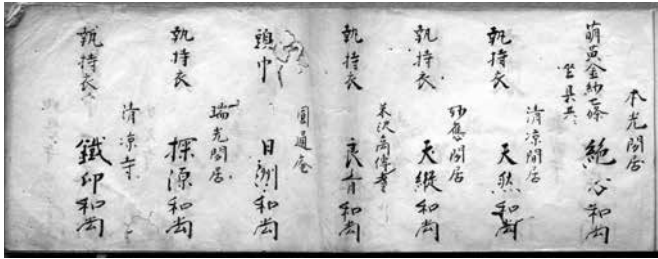 本光閑居
萌黄金紗一條
坐具共
和尚
清凉閑居
執持衣 天然和尚
妙應閑居
執持衣 天縦和尚
米沢
執持衣 良 和尚
圓通庵
頭巾 日洲和尚
瑞光閑居
執持衣 探源和尚
清凉寺
執持衣 鐵印和尚